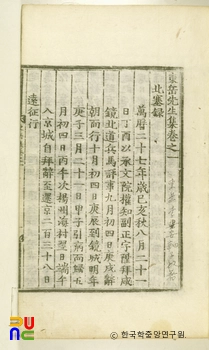 東岳先生集卷之一
北塞錄
萬曆二十七年歲己亥秋八月二十一
日丁酉以承文院權知副正字拜咸
鏡北道兵馬評事九月初四日庚戌辭
朝而行十月初四日庚辰到鏡城明年
庚子三月二十一日甲子引病而歸五
月初四日丙午次楊州海村翌日端午
入京城自拜辭至還京二百三十八日
遠征行
한국학중앙연구원